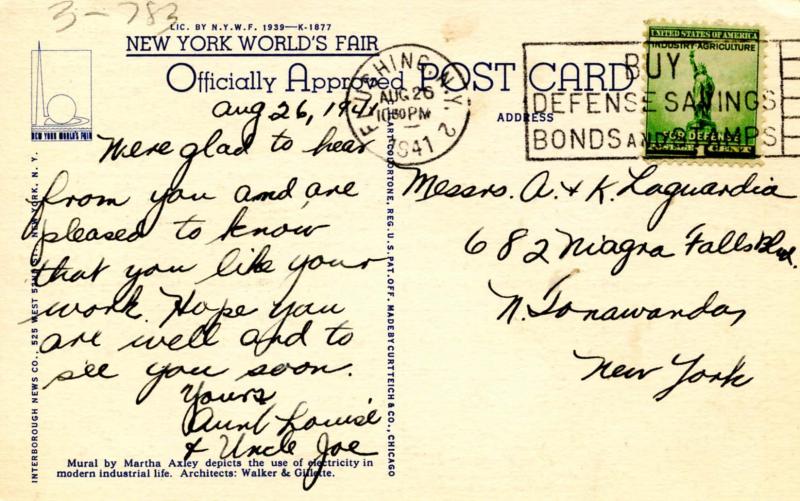 3-783
LIC. BY N.Y.W.F. 1939—K-1877
NEW YORK WORLD'S FAIR
Officially Approved POST CARD
NEW YORK WORLD'S FAIR
ADDRESS
FLUSHING, N.Y. 2
AUG 26
1941
BUY
DEFENSE SAVINGS
BONDS AND STAMPS
UNITED STATES OF AMERICA
INDUSTRY AGRICULTURE
FOR DEFENSE
1 CENTS
Aug 26, 1941
Were glad to hear
from you and are
pleased to know
that you like your
work. Hope you
are well and to
see you soon.
Yours
Aunt Louise
& Uncle Joe
Messrs. A. & K. Laguardia
682 Niagra Falls Blvd.
N. Tonawanda,
New York
Mural by Martha Axley depicts the use of electricity in
modern industrial life. Architects: Walker & Gillette.
INTERBOROUGH NEWS CO., 525 WEST 52ND ST., NEW YORK, N. Y.
ART-COLORTONE, REG. U.S. PAT. OFF. MADE BY CURT TEICH & CO., CHICAGO